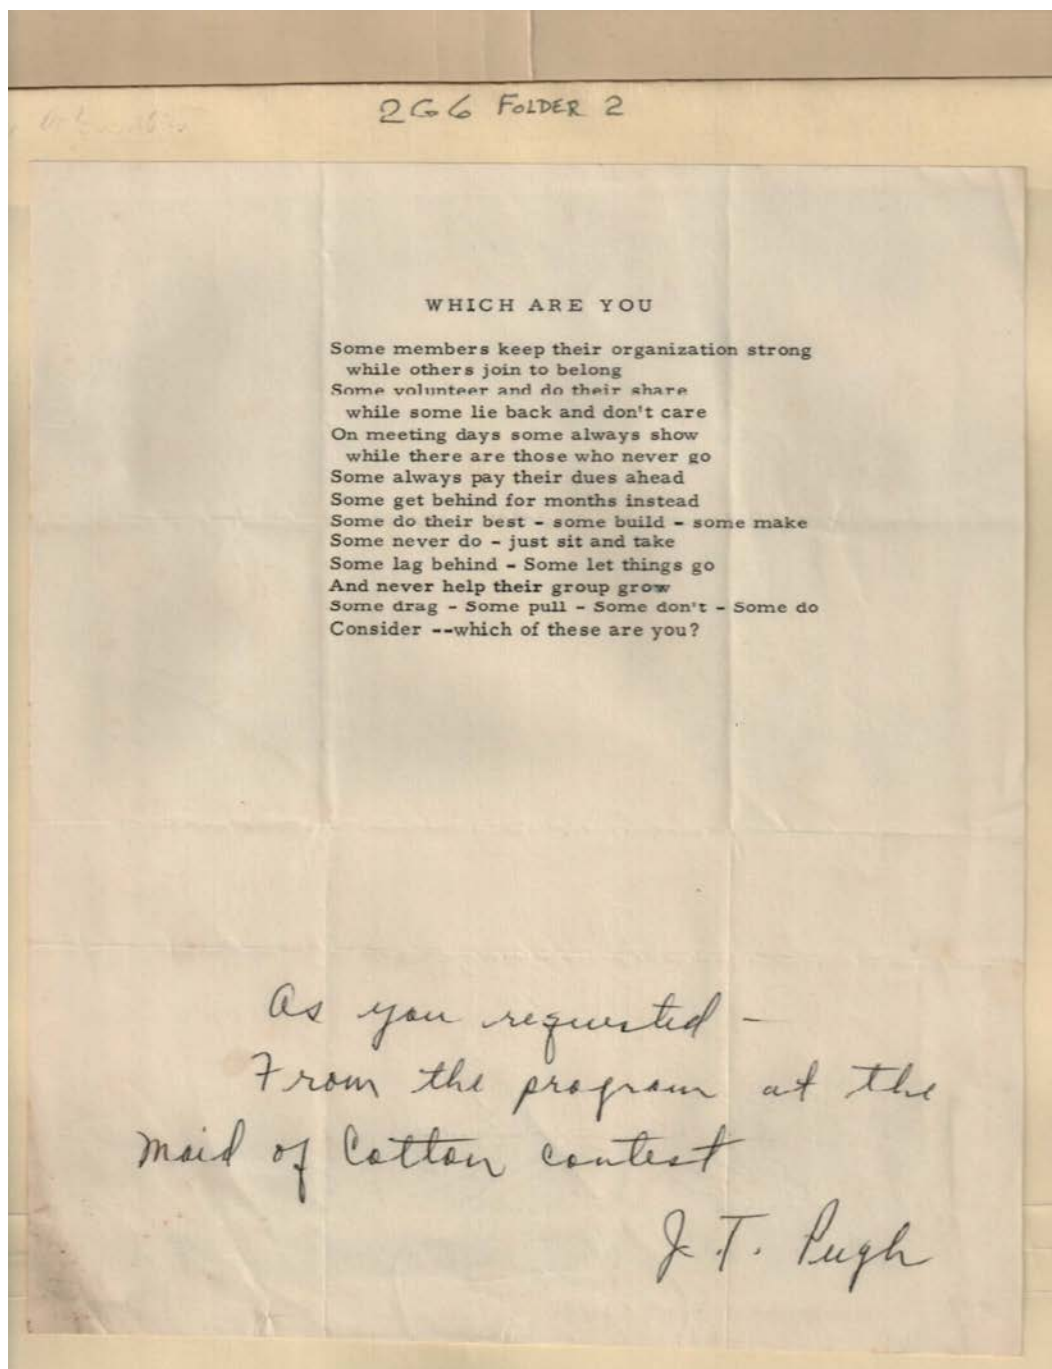 2G6 FOLDER 2
WHICH ARE YOU
Some members keep their organization strong
while others join to belong
Some volunteer and do their share
while some lie back and don't care
On meeting days some always show
while there are those who never go
Some always pay their dues ahead
Some get behind for months instead
Some do their best - some build - some make
Some never do - just sit and take
Some lag behind - Some let things go
And never help their group grow
Some drag - Some pull - Some don't - Some do
Consider --which of these are you?
As you requested -
From the program at the
Maid of Cotton contest
J. T. Pugh